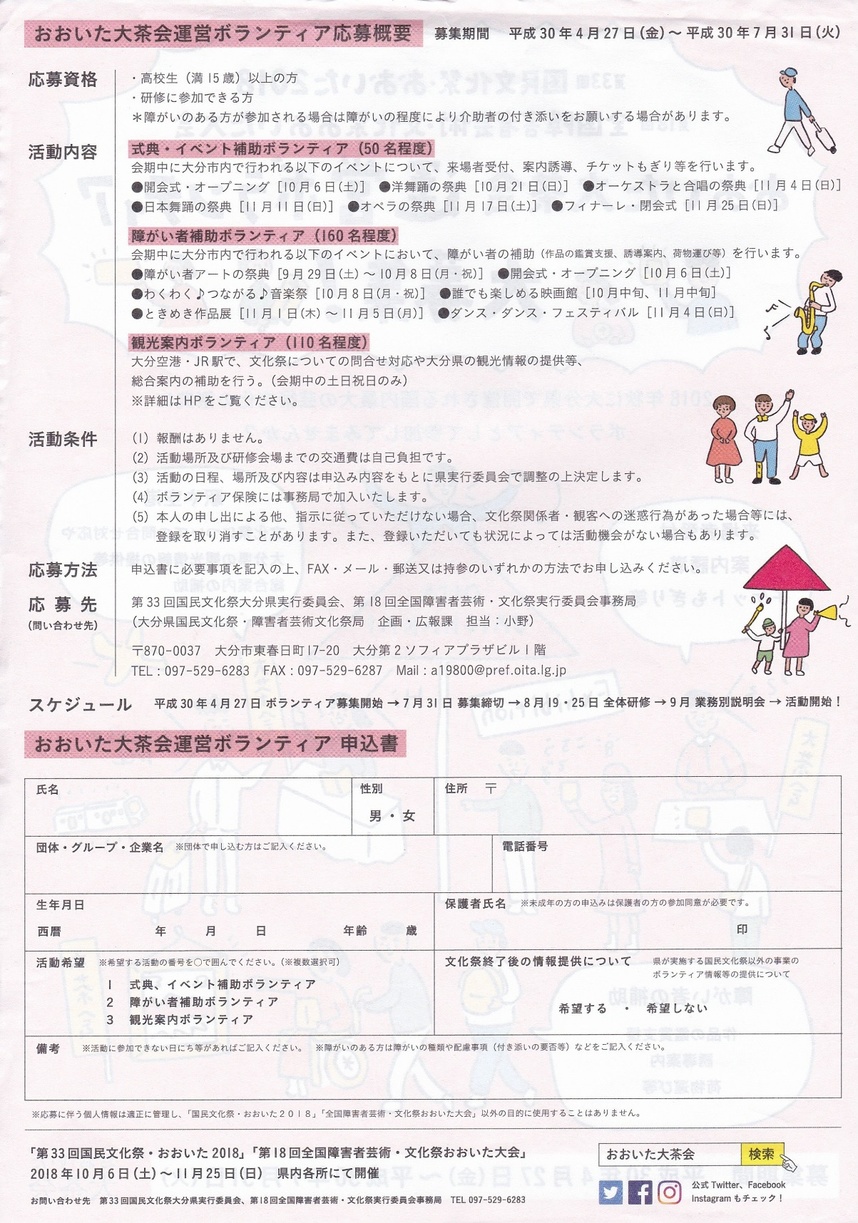 おおいた大茶会運営ボランティア応募概要 募集期間 平成30年4月27日(金)～平成30年7月31日(火)
応募資格
・高校生（満15歳）以上の方
・研修に参加できる方
＊障がいのある方が参加される場合は障がいの程度により介助者の付き添いをお願いする場合があります。
活動内容
式典・イベント補助ボランティア（50名程度）
会期中に大分市内で行われる以下のイベントについて、来場者受付、案内誘導、チケットもぎり等を行います。
●開会式・オープニング［10月6日(土)］ ●洋舞踊の祭典［10月21日(日)］ ●オーケストラと合唱の祭典［11月4日(日)］
●日本舞踊の祭典［11月11日(日)］ ●オペラの祭典［11月17日(土)］ ●フィナーレ・閉会式［11月25日(日)］
障がい者補助ボランティア（160名程度）
会期中に大分市内で行われる以下のイベントにおいて、障がい者の補助（作品の鑑賞支援、誘導案内、荷物運び等）を行います。
●障がい者アートの祭典［9月29日(土)～10月8日(月・祝)］ ●開会式・オープニング［10月6日(土)］
●わくわく♪つながる♪音楽祭［10月8日(月・祝)］ ●誰でも楽しめる映画館［10月中旬、11月中旬］
●ときめき作品展［11月1日(木)～11月5日(月)］ ●ダンス・ダンス・フェスティバル［11月4日(日)］
観光案内ボランティア（110名程度）
大分空港・JR駅で、文化祭についての問合せ対応や大分県の観光情報の提供等、
総合案内の補助を行う。（会期中の土日祝日のみ）
※詳細はHPをご覧ください。
活動条件
(1) 報酬はありません。
(2) 活動場所及び研修会場までの交通費は自己負担です。
(3) 活動の日程、場所及び内容は申込み内容をもとに県実行委員会で調整の上決定します。
(4) ボランティア保険には事務局で加入いたします。
(5) 本人の申し出による他、指示に従っていただけない場合、文化祭関係者・観客への迷惑行為があった場合等には、
登録を取り消すことがあります。また、登録いただいても状況によっては活動機会がない場合もあります。
応募方法
申込書に必要事項を記入の上、FAX・メール・郵送又は持参のいずれかの方法でお申し込みください。
応募先
(問い合わせ先)
第33回国民文化祭大分県実行委員会、第18回全国障害者芸術・文化祭実行委員会事務局
（大分県国民文化祭・障害者芸術文化祭局 企画・広報課 担当：小野）
〒870-0037 大分市東春日町17-20 大分第2ソフィアプラザビル1階
TEL : 097-529-6283 FAX : 097-529-6287 Mail : a19800@pref.oita.lg.jp
スケジュール 平成30年4月27日 ボランティア募集開始 → 7月31日 募集締切 → 8月19・25日 全体研修 → 9月 業務別説明会 → 活動開始！
おおいた大茶会運営ボランティア 申込書
氏名
性別
男・女
住所 〒
団体・グループ・企業名 ※団体で申し込む方はご記入ください。
電話番号
生年月日
西暦 年 月 日 年齢 歳
保護者氏名 ※未成年の方の申込みは保護者の方の参加同意が必要です。
印
活動希望 ※希望する活動の番号を○で囲んでください。（※複数選択可）
1 式典、イベント補助ボランティア
2 障がい者補助ボランティア
3 観光案内ボランティア
文化祭終了後の情報提供について 県が実施する国民文化祭以外の事業の
ボランティア情報等の提供について
希望する ・ 希望しない
備考 ※活動に参加できない日にち等があればご記入ください。 ※障がいのある方は障がいの種類や配慮事項（付き添いの要否等）などをご記入ください。
※応募に伴う個人情報は適正に管理し、「国民文化祭・おおいた2018」「全国障害者芸術・文化祭おおいた大会」以外の目的に使用することはありません。
「第33回国民文化祭・おおいた2018」「第18回全国障害者芸術・文化祭おおいた大会」
2018年10月6日(土)～11月25日(日) 県内各所にて開催
お問い合わせ先 第33回国民文化祭大分県実行委員会、第18回全国障害者芸術・文化祭実行委員会事務局 TEL 097-529-6283
おおいた大茶会 検索
公式Twitter、Facebook
Instagramもチェック！